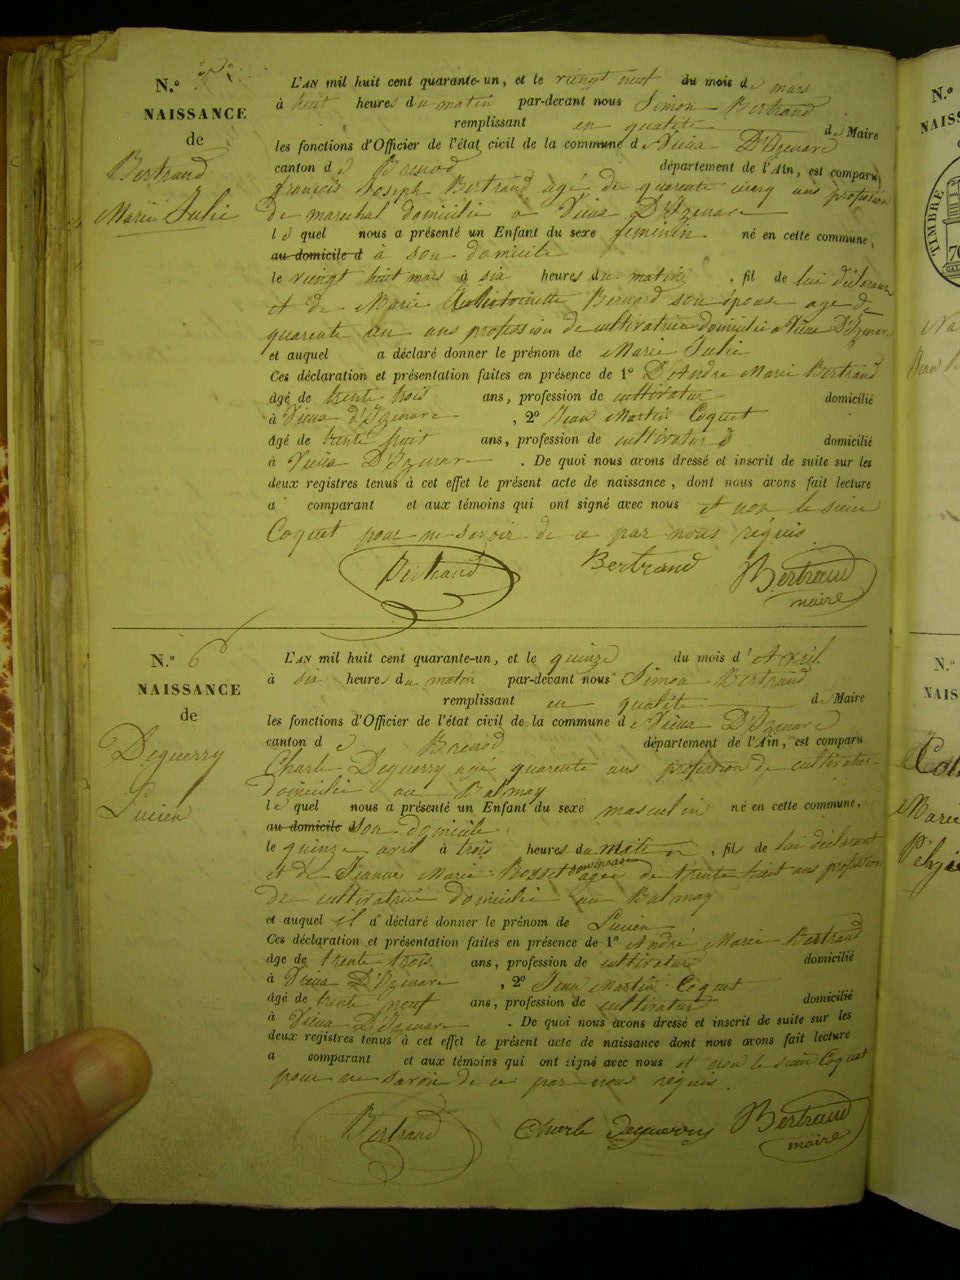 N.º 5
NAISSANCE
de
Bertrand
Marie Julie
L'AN mil huit cent quarante-un, et le vingt neuf du mois de mars
à huit heures du matin par-devant nous Simon Bertrand
remplissant en qualité de Maire
les fonctions d'Officier de l'état civil de la commune de Vieux D'Izenave
canton d e Brenod département de l'Ain, est comparu
françois Joseph Bertrand agé de quarente cinq ans profession
de marechal domicilié a Vieux D'Izenave
le quel nous a présenté un Enfant du sexe feminin né en cette commune,
au domicile d à son domicile
le vingt huit mars à six heures du matin, fil de lui déclarant
et de Marie Antoinette Bernard son épouse age de
quarente un ans profession de cultivatrice domicilié a Vieux D'Izenave
et auquel a déclaré donner le prénom de Marie Julie
Ces déclaration et présentation faites en présence de 1º D'Andre Marie Bertrand
âgé de trente trois ans, profession de cultivateur domicilié
à Vieux d'Izenave, 2º Jean Martin Coquet
âgé de trente huit ans, profession de cultivateur domicilié
à Vieux D'Izenave. De quoi nous avons dressé et inscrit de suite sur les
deux registres tenus à cet effet le présent acte de naissance, dont nous avons fait lecture
a comparant et aux témoins qui ont signé avec nous et non le sieur
Coquet pour ne savoir de ce par nous réquis
Bertrand Bertrand Bertrand
maire
N.º 6
NAISSANCE
de
Deguerry
Lucien
L'AN mil huit cent quarante-un, et le quinze du mois d'Avril
à six heures du matin par-devant nous Simon Bertrand
remplissant en qualité de Maire
les fonctions d'Officier de l'état civil de la commune de Vieux D'Izenave
canton d e Brenod département de l'Ain, est comparu
Charle Deguerry agé quarente ans profession de cultivateur
domicilié au Balmay
le quel nous a présenté un Enfant du sexe masculin né en cette commune,
au domicile d son domicile
le quinze avril à trois heures du matin, fils de lui déclarant
et de Jeanne Marie Bosset son épouse agée de trente huit ans profession
de cultivatrice domicilié au Balmay
et auquel il a déclaré donner le prénom de Lucien
Ces déclaration et présentation faites en présence de 1º André Marie Bertrand
âge de trente trois ans, profession de cultivateur domicilié
à Vieux D'Izenave, 2º Jean Martin Coquet
âgé de trente neuf ans, profession de cultivateur domicilié
à Vieux D'Izenave. De quoi nous avons dressé et inscrit de suite sur les
deux registres tenus à cet effet le présent acte de naissance dont nous avons fait lecture
a comparant et aux témoins qui ont signé avec nous et non le sieur Coquet
pour ne savoir de ce par nous réquis
Bertrand Charle Deguerry Bertrand
maire
N.º
NAISS
TIMBRE
N.º
NAIS
Marie